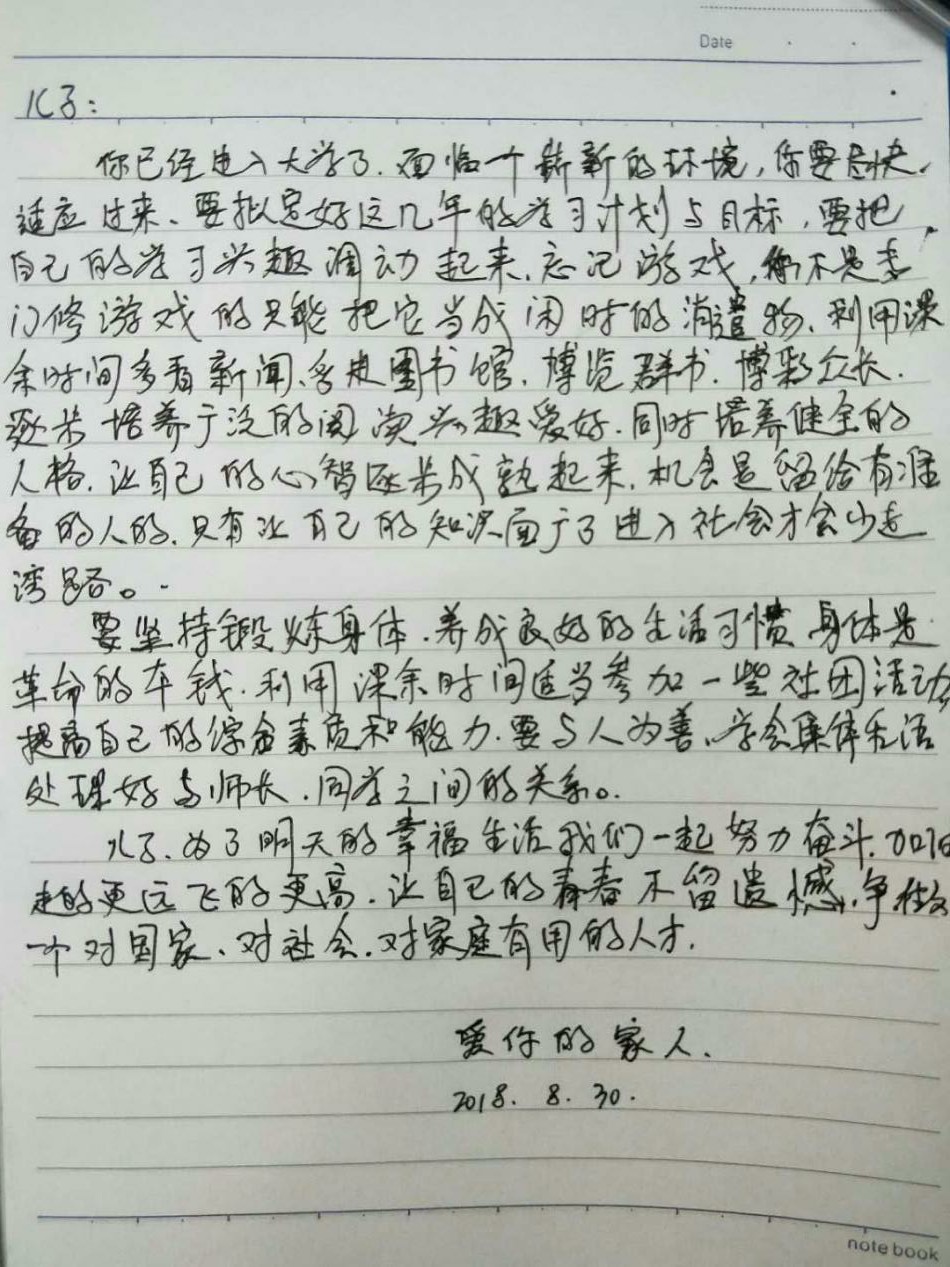 Date
儿子:
你已经进入大学了.面临一个崭新的环境,你要尽快
适应过来、要拟定好这几年的学习计划与目标,要把
自己的学习兴趣调动起来.忘记游戏,你不是专
门修游戏的只能把它当成闲时的消遣物.利用课
余时间多看新闻、多走图书馆.博览群书.博彩众长.
逐步培养广泛的阅读兴趣爱好.同时培养健全的
人格.让自己的心智逐步成熟起来.机会是留给有准
备的人的.只有让自己的知识面广了进入社会才会少走
湾路。
要坚持锻炼身体.养成良好的生活习惯身体是
革命的本钱.利用课余时间适当参加一些社团活动
提高自己的综合素质和能力.要与人为善、学会集体生活
处理好与师长.同学之间的关系。
儿子、为了明天的幸福生活我们一起努力奋斗.加油
越的更远飞的更高.让自己的青春不留遗憾.争做
一个对国家、对社会.对家庭有用的人才.
爱你的家人.
2018.8.30.
note book